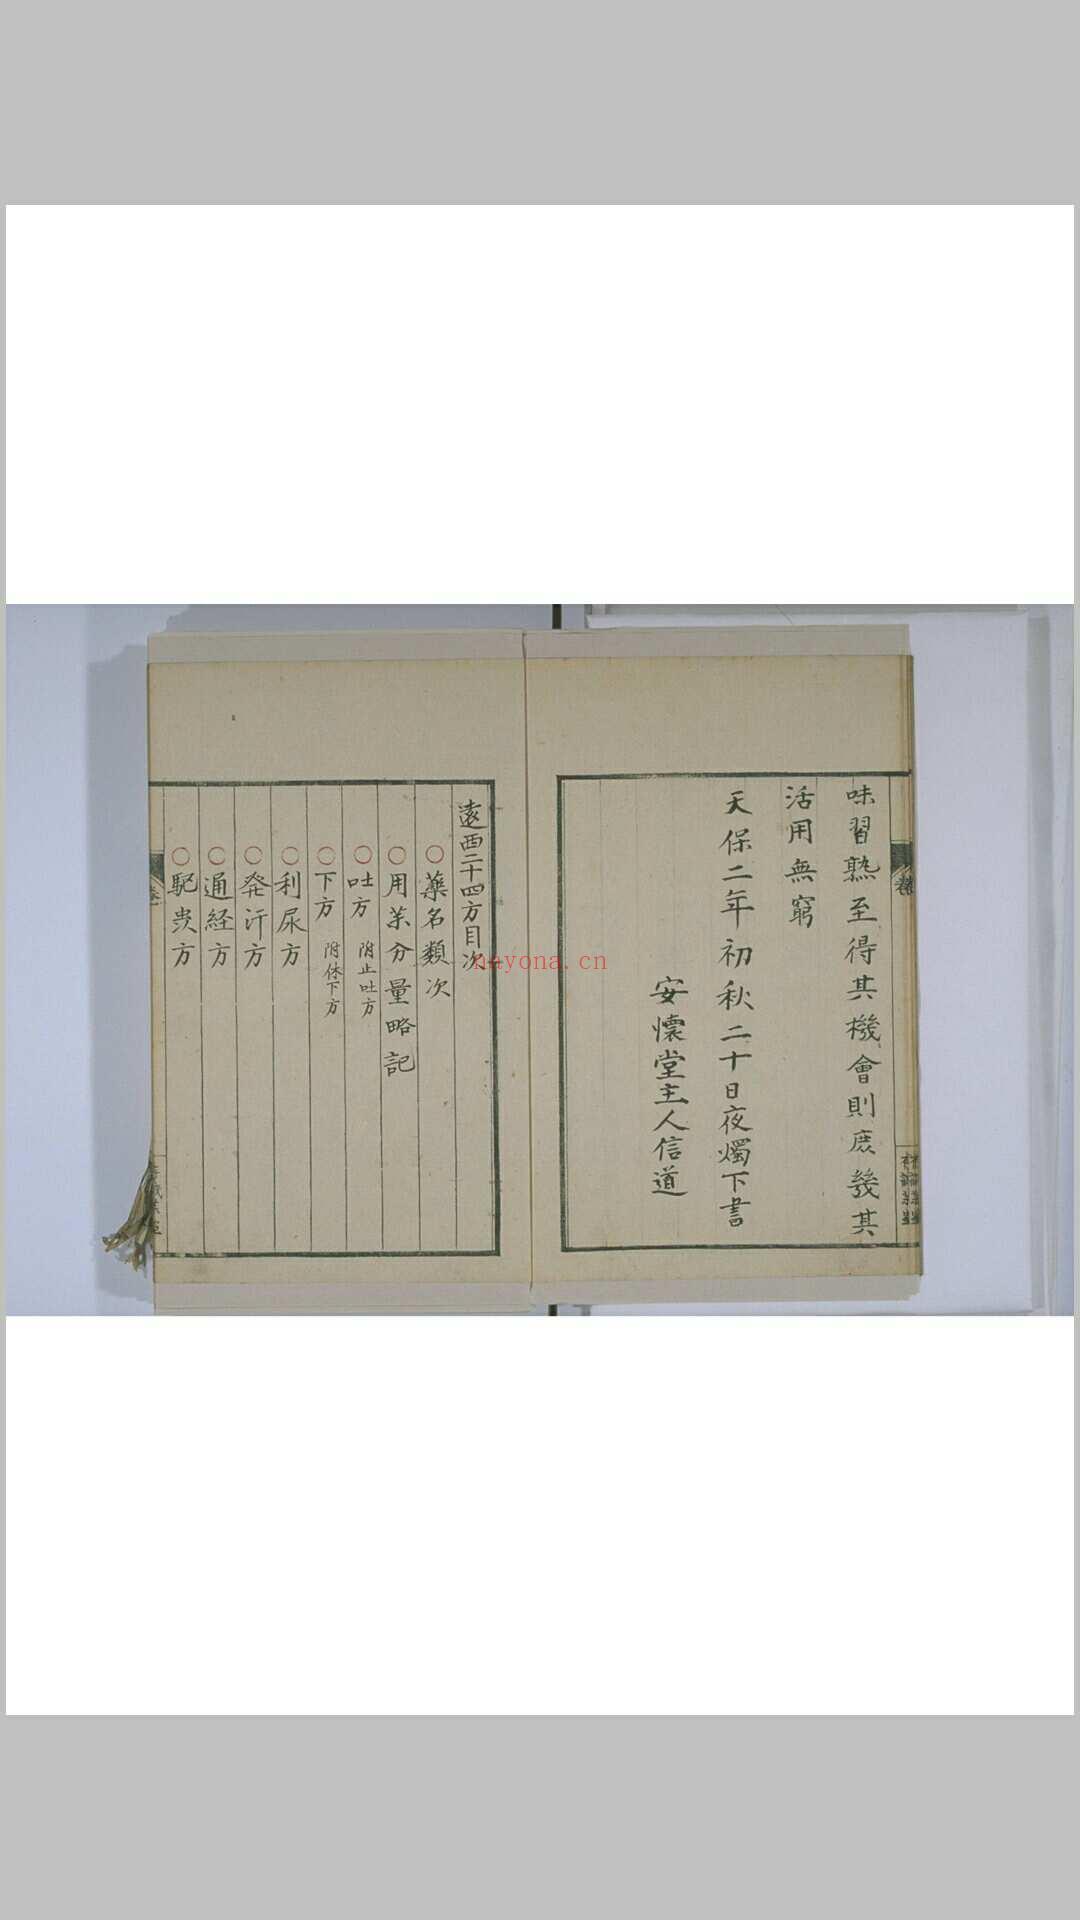 味習熟至得其機會則庶幾其
活用無窮
天保二年初秋二十日夜燭下書
安懷堂主人信道
遠西二十四方目次
○藥名類次
○用茶分量略記
○吐方 附止吐方
○下方 附休下方
○利尿方
○発汗方
○通経方
○駆虫方
nayona.cn